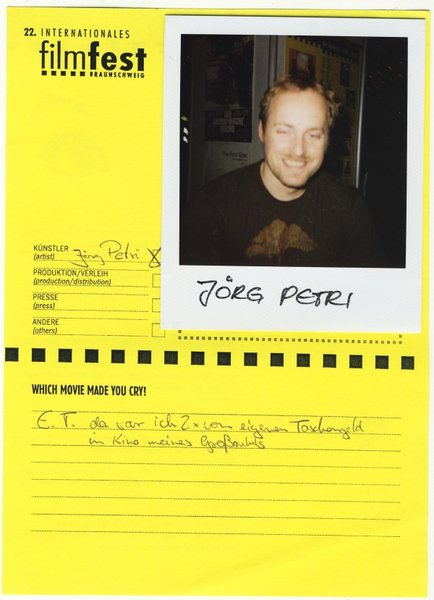 22. INTERNATIONALES
filmfest
BRAUNSCHWEIG
JÖRG PETRI
KÜNSTLER
(artist)
Jörg Petri
PRODUKTION/VERLEIH
(production/distribution)
PRESSE
(press)
ANDERE
(others)
WHICH MOVIE MADE YOU CRY?
E.T. da war ich 2x vom eigenen Taschengeld
im Kino meines Großonkels